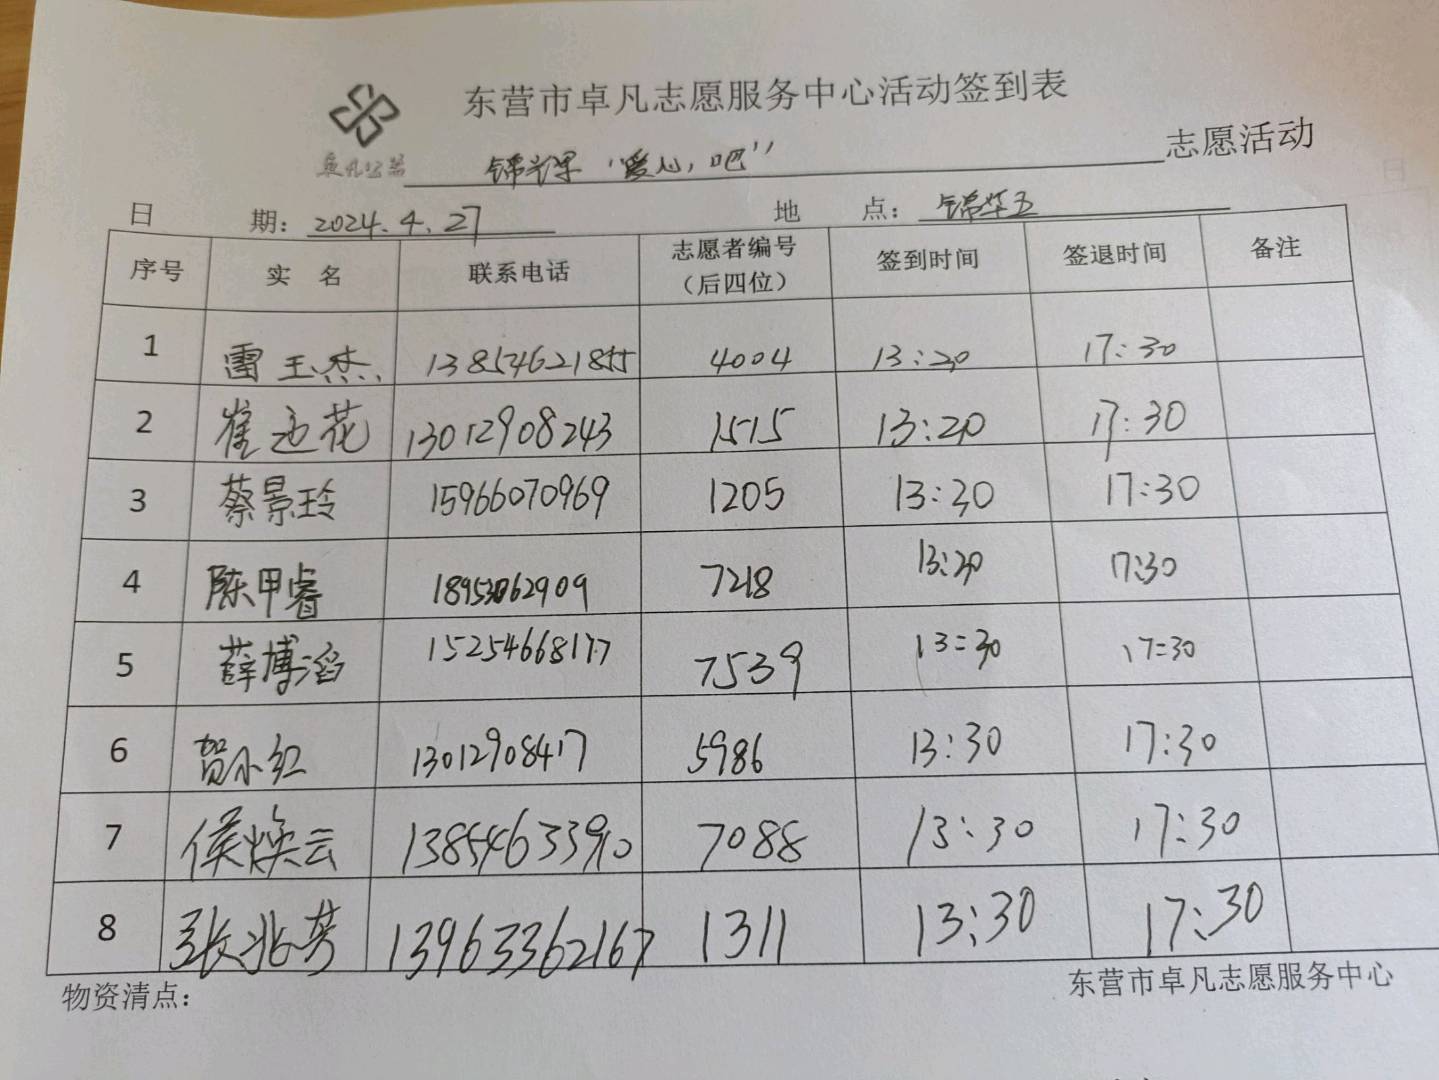 东营市卓凡志愿服务中心活动签到表
卓凡公益 "爱心吧" 志愿活动
日 期: 2024.4.27 地 点: 锦华五
序号 实 名 联系电话 志愿者编号(后四位) 签到时间 签退时间 备注
1 雷玉杰 4004 13:20 17:30
2 崔 花 13012908243 1515 13:20 17:30
3 蔡景玲 15966070969 1205 13:30 17:30
4 陈甲睿 7218 13:30 17:30
5 薛博滔 15254668177 7539 13:30 17:30
6 贺小红 13012908417 5986 13:30 17:30
7 侯焕云 13854633910 7088 13:30 17:30
8 张兆芳 13963362167 1311 13:30 17:30
物资清点: 东营市卓凡志愿服务中心